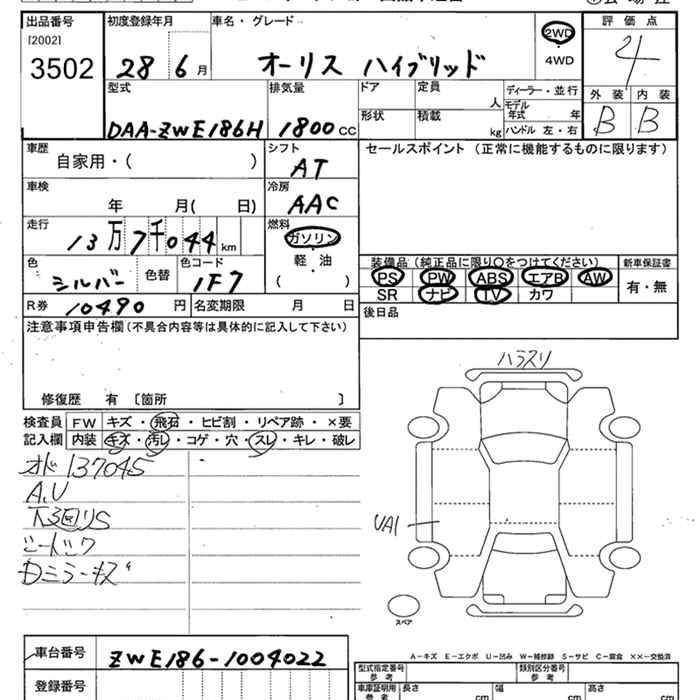 出品番号 初度登録年月 車名・グレード 評価点
[2002]
3502 28 6月 オーリス ハイブリッド 2WD 4
4WD
型式 排気量 ドア 定員 ディーラー・並行 外装 内装
人 モデル年式 年
形状 積載 kg ハンドル 左・右
DAA-ZWE186H 1800cc B B
車歴 シフト セールスポイント (正常に機能するものに限ります)
自家用・( ) AT
車検 冷房
年 月( 日) AAC
走行 燃料
13万7千044km ガソリン
軽・油
( ・ )
色 色替 色コード
シルバー 1F7
装備品(純正品に限り○をつけてください) 新車保証書
PS PW ABS エアB AW 有・無
SR ナビ TV カワ
R券 10490円 名変期限 月 日 後日品
注意事項申告欄(不具合内容等は具体的に記入して下さい)
修復歴 有 〔箇所 〕
検査員 FW キズ・飛石・ヒビ割・リペア跡・×要
記入欄 内装 キズ・汚レ・コゲ・穴・スレ・キレ・破レ
オド137045
A,U
下回りS
ハラスリ
UA1
スペア
A-キズ E-エクボ U-凹み W-補修跡 S-サビ C-腐食 ××-交換済
車台番号 ZWE186-1004022
登録番号
型式指定番号 類別区分番号
参考 参考
車庫証明用 長さ 幅 高さ
参考 cm cm cm